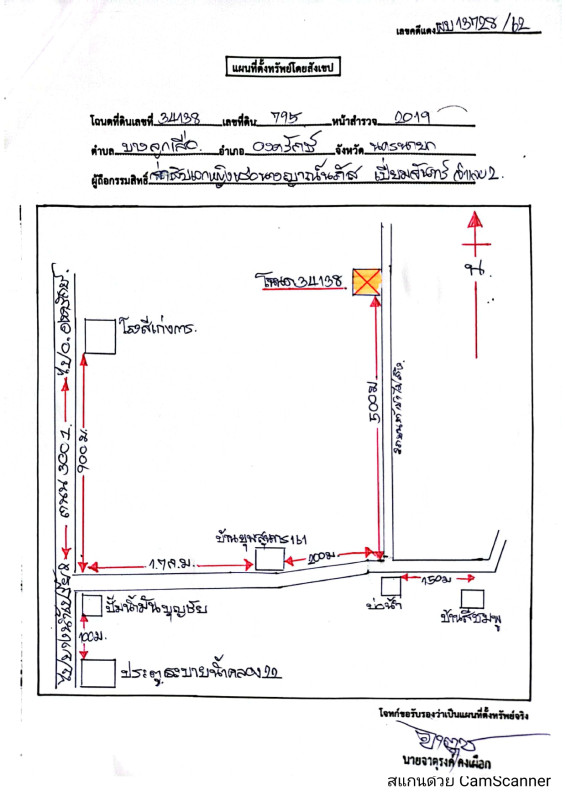 เลขคดีแดง ผบ 13728/62
แผนที่ตั้งทรัพย์โดยสังเขป
โฉนดที่ดินเลขที่ 34138 เลขที่ดิน 795 หน้าสำรวจ 2019
ตำบล บางลูกเสือ อำเภอ องครักษ์ จังหวัด นครนายก
ผู้ถือกรรมสิทธิ์ เปี่ยมสันทร์ จำเลย 2.
น.
โฉนด 34138
ไป อ. องครักษ์.
โรงสีเก่งการ.
500 ม.
900 ม.
ถนน 3001.
บ้านขุนสมุทร 161
1.7 ก.ม.
200 ม.
150 ม.
บ่อน้ำ
บ้านสีชมพู
ปั๊มน้ำมันบุญชัย
100 ม.
ประตูระบายน้ำคลอง 22
โจทก์ขอรับรองว่าเป็นแผนที่ตั้งทรัพย์จริง
นายจาตุรงค์ คงเผือก
สแกนด้วย CamScanner